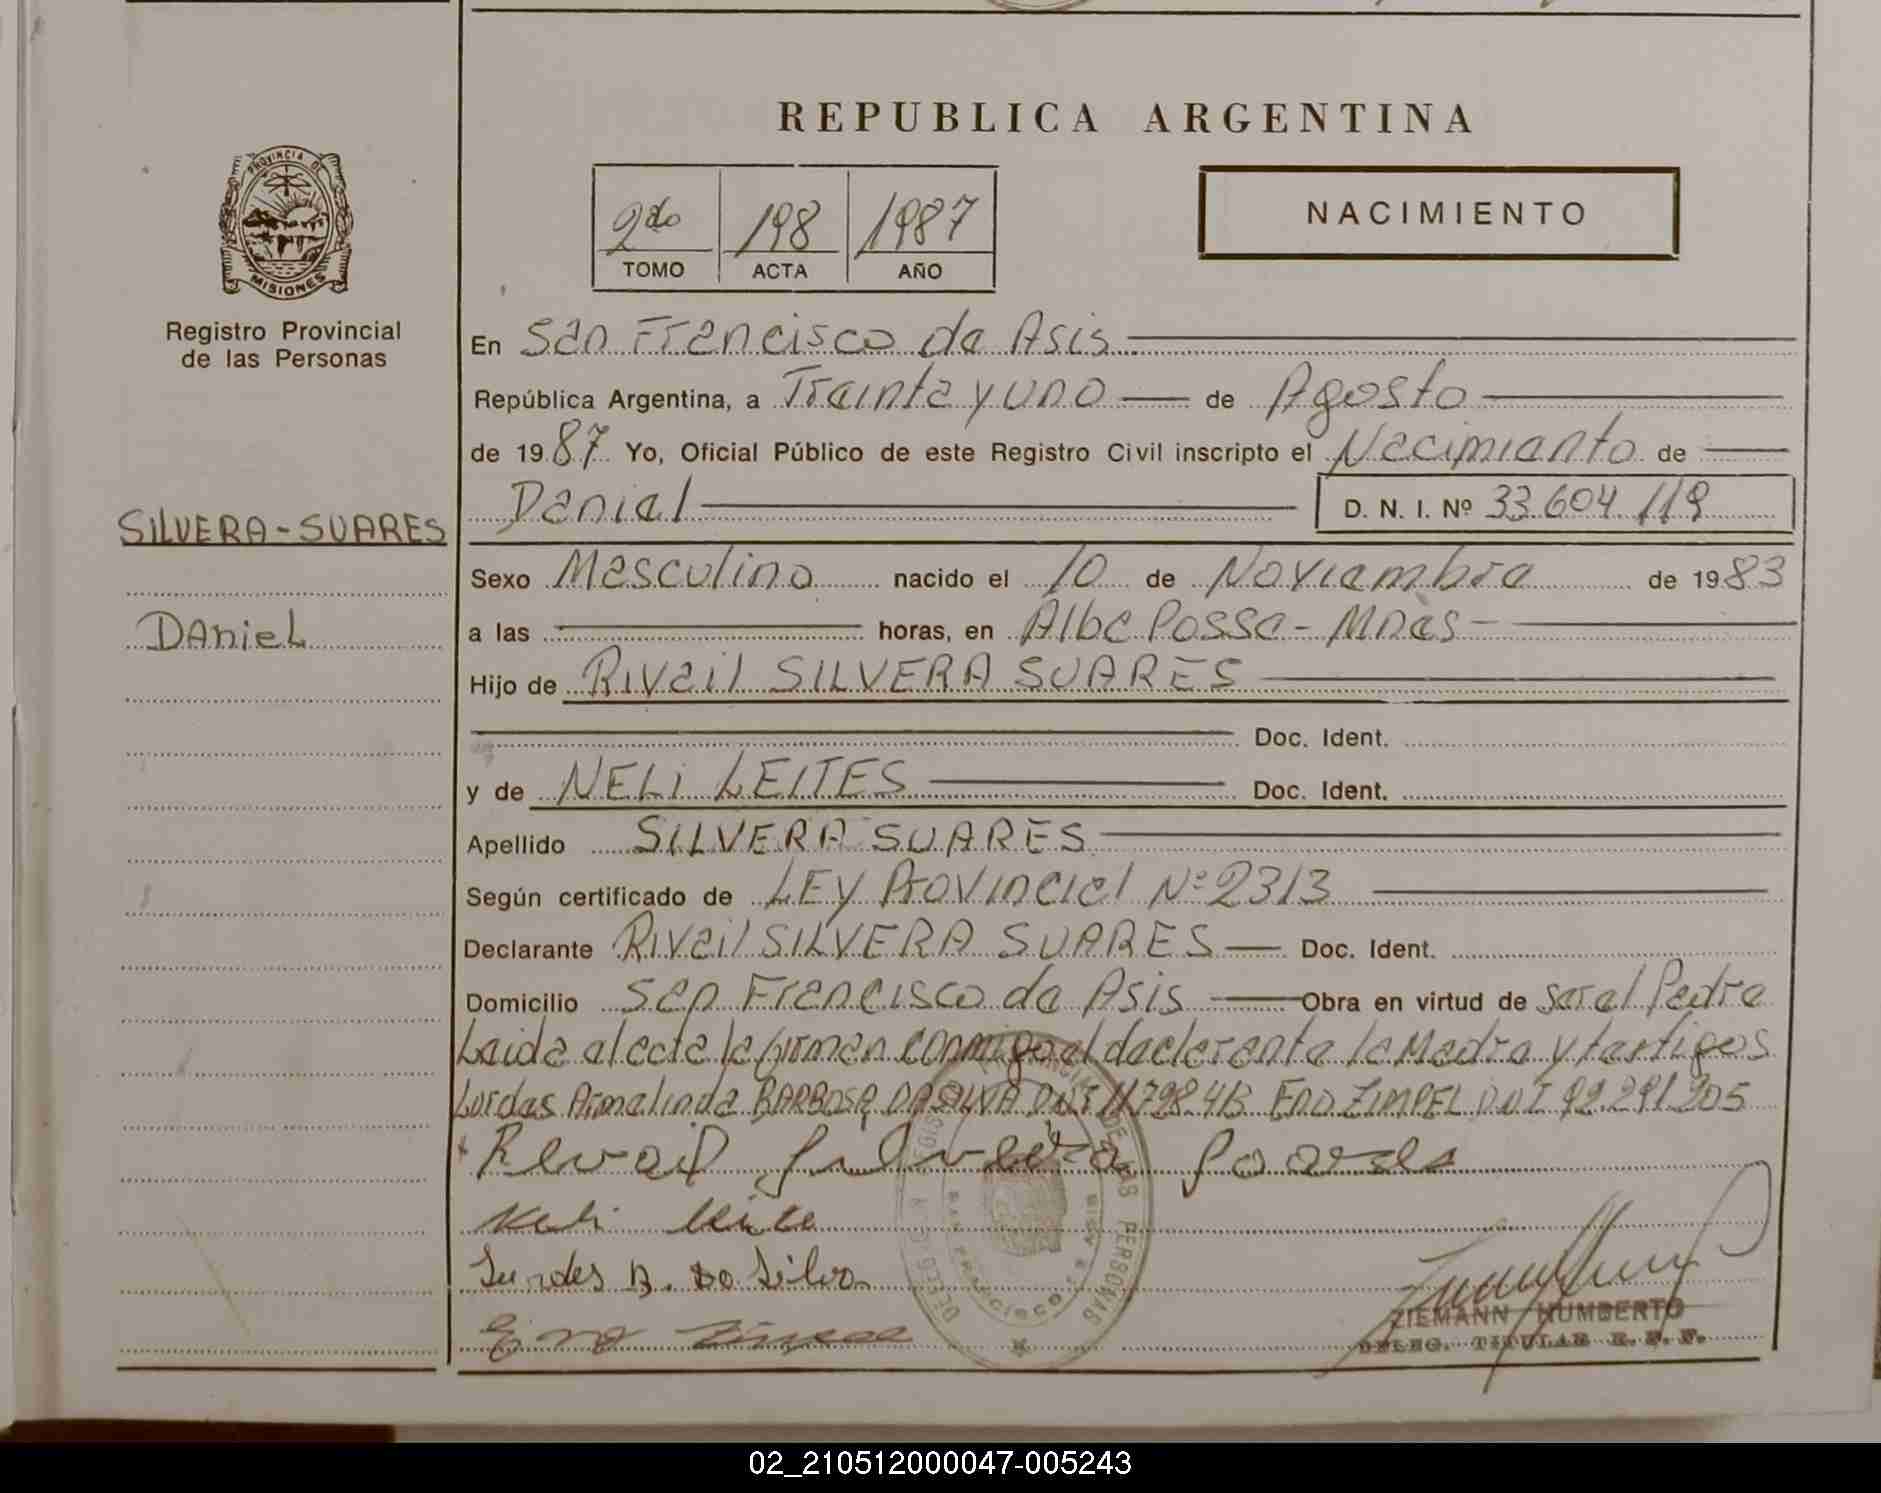 REPUBLICA ARGENTINA
PROVINCIA DE
MISIONES
Registro Provincial
de las Personas
SILVERA-SUARES
DANieL
2do 198 1987
TOMO ACTA AÑO
NACIMIENTO
En San Francisco de Asis
República Argentina, a Treinta y uno de Agosto
de 1987 Yo, Oficial Público de este Registro Civil inscripto el Nacimiento de
Daniel D. N. I. Nº 33.604.119
Sexo Masculino nacido el 10 de Noviembre de 1983
a las horas, en Alba Possa - Mnes -
Hijo de Rivail SILVERA SUARES
Doc. Ident.
y de NELi LEITES Doc. Ident.
Apellido SILVERA SUARES
Según certificado de LEY Provincial Nº 2313
Declarante Rivail SILVERA SUARES Doc. Ident.
Domicilio San Francisco de Asis Obra en virtud de ser el Padre
Leida el acta la firman conmigo el declarante la Madre y testigos
Lurdes Armelinda BARBOSA DA SILVA DNI ENO ZIMPEL DNI 92.291.205
Neli Leite
Lurdes B. Da Silva
DELEGACION REGISTRO PROVINCIAL DE LAS PERSONAS
SAN FRANCISCO DE ASIS
ZIEMANN HUMBERTO
DELEG. TITULAR R. P. P.
02_210512000047-005243